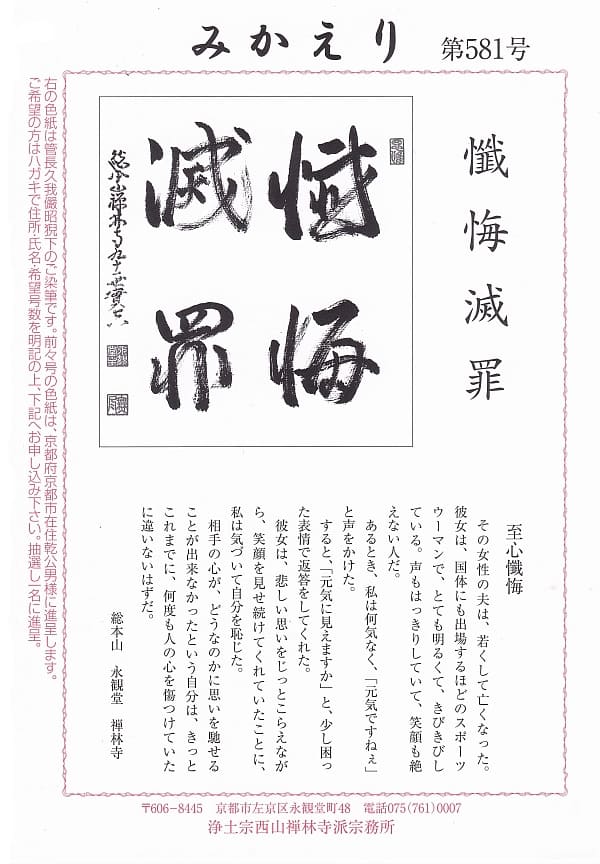 みかえり 第581号
懺悔滅罪
懺悔
滅罪
至心懺悔
その女性の夫は、若くして亡くなった。
彼女は、国体にも出場するほどのスポーツ
ウーマンで、とても明るくて、きびきびし
ている。声もはっきりしていて、笑顔も絶
えない人だ。
あるとき、私は何気なく、「元気ですねぇ」
と声をかけた。
すると、「元気に見えますか」と、少し困っ
た表情で返答をしてくれた。
彼女は、悲しい思いをじっとこらえなが
ら、笑顔を見せ続けてくれていたことに、
私は気づいて自分を恥じた。
相手の心が、どうなのかに思いを馳せる
ことが出来なかったという自分は、きっと
これまでに、何度も人の心を傷つけていた
に違いないはずだ。
総本山 永観堂 禅林寺
右の色紙は管長久我儼昭猊下のご染筆です。前々号の色紙は、京都府京都市在住乾公男様に進呈します。
ご希望の方はハガキで住所・氏名・希望号数を明記の上、下記へお申し込み下さい。抽選し一名に進呈。
〒606−8445 京都市左京区永観堂町48 電話075(761)0007
浄土宗西山禅林寺派宗務所